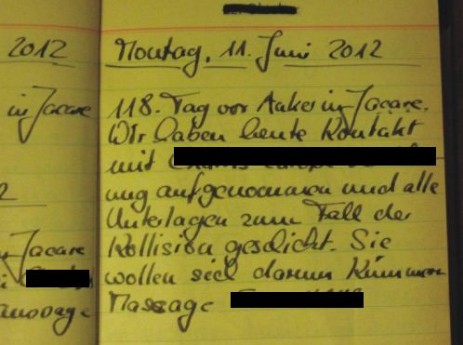 2012
in Jacare
2
Jacare
Montag, 11. Juni 2012
118. Tag vor Anker in Jacare.
Wir haben heute Kontakt
mit
ung aufgenommen und alle
Unterlagen zum Fall der
Kollision geschickt. Sie
wollen sich darum kümmern
Massage